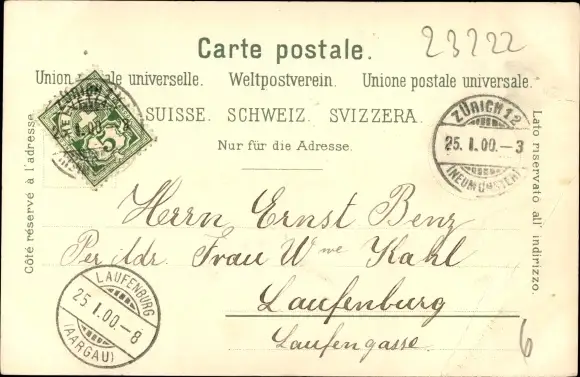 Carte postale.
23222
Union postale universelle. Weltpostverein. Unione postale universale.
SUISSE. SCHWEIZ. SVIZZERA.
Nur für die Adresse.
Côté réservé à l'adresse.
Lato riservato all' indirizzo.
ZÜRICH 12
25. I. 00. – 3
(NEUMÜNSTER)
ZÜRICH 12
I. 00.
5
Herrn Ernst Benz
Per Adr. Frau Wwe Kahl
Laufenburg
Laufengasse.
LAUFENBURG
25. I. 00. – 8
(AARGAU)
6